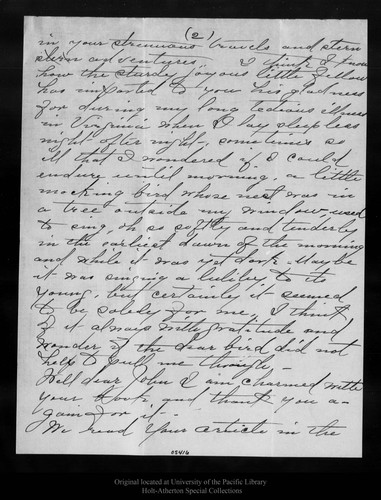 (2)
in your strenuous travels and stern
stern adventures I think I know
how the sturdy joyous little fellow
has imparted to you his gladness
for during my long tedious illness
in Virginia when I lay sleepless
night after night, sometimes so
ill that I wondered if I could
endure until morning, a little
mocking bird whose nest was in
a tree outside my window used
to sing, oh so softly and tenderly
in the earliest dawn of the morning
and while it was yet dark. Maybe
it was singing a lulliby to its
young, but certainly it seemed
to be solely for me, I think
of it always with gratitude and
wonder if the dear bird did not
help to pull me through -
Well dear John I am charmed with
your book and thank you a-
gain for it -
We read your article in the
02416
Original located at University of the Pacific Library
Holt-Atherton Special Collections